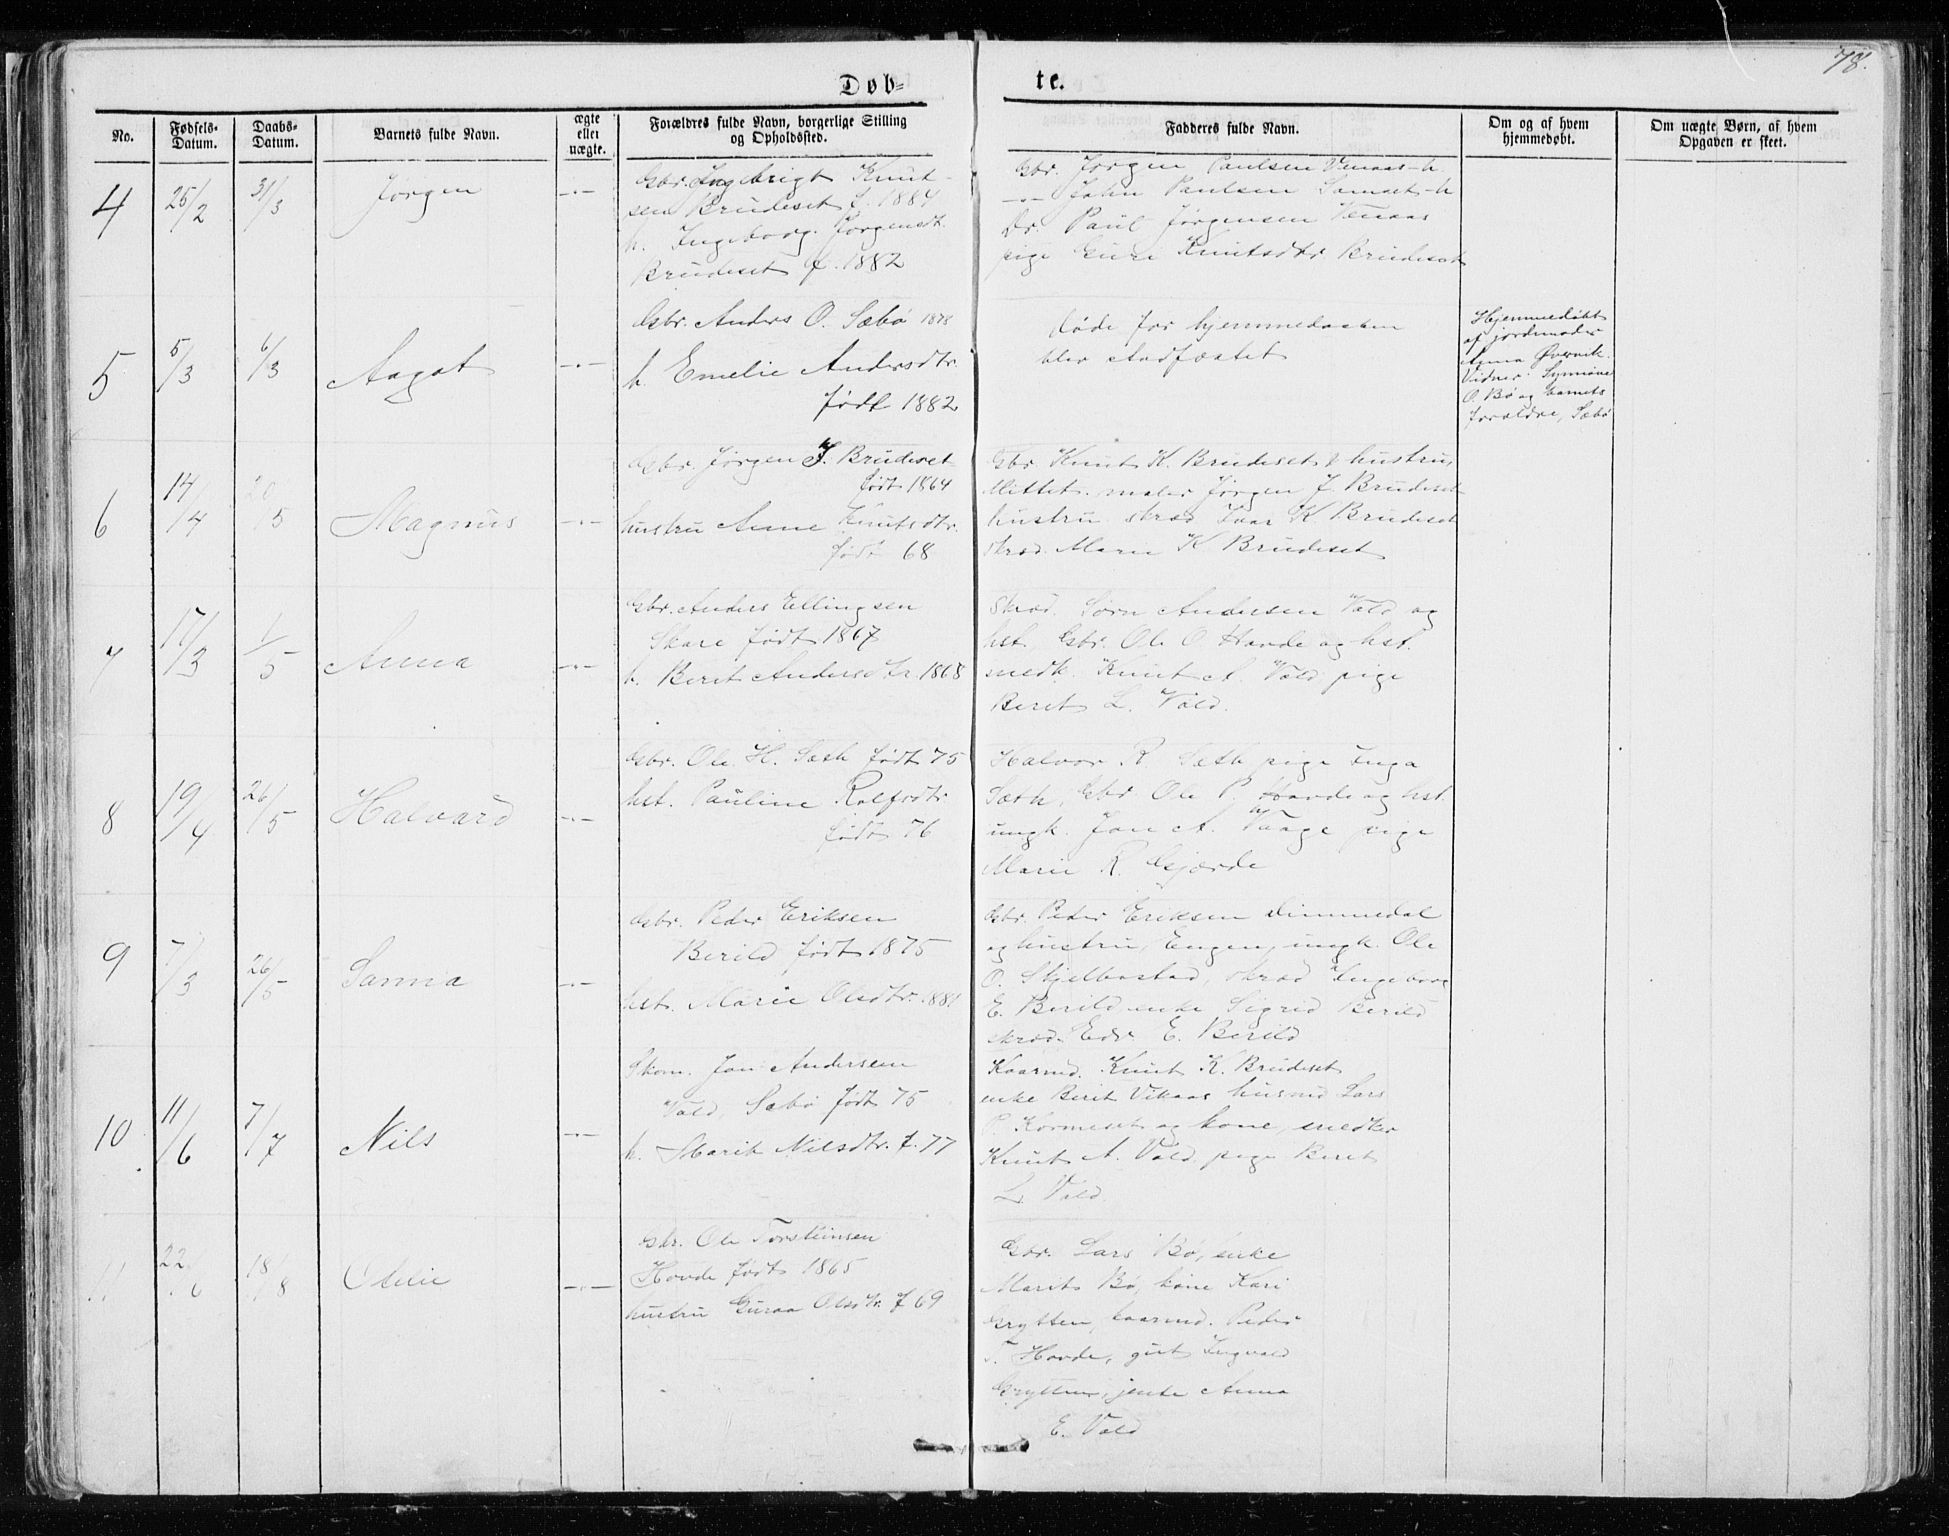 78.
Døb-
te.
No.
Fødsels-
Datum.
Daabs-
Datum.
Barnets fulde Navn.
ægte
eller
uægte.
Forældres fulde Navn, borgerlige Stilling
og Opholdssted.
Fadderes fulde Navn.
Om og af hvem
hjemmedøbt.
Om uægte Børn, af hvem
Opgaven er skeet.
4
25/2
31/3
Jørgen
-"-
Gbr. Ingebrigt Knut-
sen Brudeset f. 1884
h. Ingeborg Jørgensdt.
Brudeset f. 1882
Gbr. Jørgen Paulsen Venaas - h
-"- John Paulsen - h
Dr. Paul Jørgensen Venaas
pige Guri Knutsdtr Brudeset
5
5/3
6/3
Aagot
-"-
Gbr. Anders O. Sæbø 1878
h. Emelie Andersdtr.
født 1882
døde før hjemmedaaben
blev stadfæstet
Hjemmedøbt
af jordmoder
Anna Øvervik.
Vidner: Synnøve
O. Bø og barnets
forældre, Sæbø
6
14/4
20/5
Magnus
-"-
Gbr. Jørgen J. Brudeset
født 1864
hustru Anne Knutsdtr.
født 68
Gbr. Knut K. Brudeset & hustru
Mittet. maler Jørgen J. Brudeset
hustru skræd Ivar K Brudeset
skræd. Marie K Brudeset
7
17/3
1/5
Anna
-"-
Gbr. Anders Ellingsen
Skare født 1867
h. Berit Andersdtr. 1868
Skræd. Søren Andersen Vold og
hst. Gbr. Ole O. Hovde og hst.
snedk. Knut A. Vold pige
Berit L. Vold.
8
19/4
26/5
Halvard
-"-
Gbr. Ole H. Sæth født 75
hst. Pauline Rolfsdtr
født 76
Halvor R. Sæth pige Inga
Sæth, Gbr. Ole P. Hovde og hst.
ungk. Jon A. Vaage pige
Marie R. Gjærde
9
7/3
26/5
Sanna
-"-
Gbr. Peder Eriksen
Berild født 1875
hst. Marie Olsdtr. 1881
Gbr. Peder Eriksen Dimmedal
og hustru, Engen, ungk. Ole
O. Skjelbostad, skræd Ingeborg
E. Berild enke Sigrid Berild
skræd. Edv E. Berild
10
11/6
7/7
Nils
-"-
Skom. Jon Andersen
Vold, Sæbø født 75
h. Marit Nilsdtr. f. 77
Kaarmd. Knut K. Brudeset
enke Berit Vikaas husmd Lars
P. Kormeset og kone, snedker
Knut A. Vold pige Berit
L. Vold
11
22/6
18/8
Oline
-"-
Gbr. Ole Torsteinsen
Hovde født 1865
hustru Guroa Olsdtr. f 69
Gbr. Lars Bø, enke
Marit Bø, kone Kari
Grytten, kaarmd. Peder
T. Hovde, gut Ingvald
Grytten, jente Anna
E. Vold